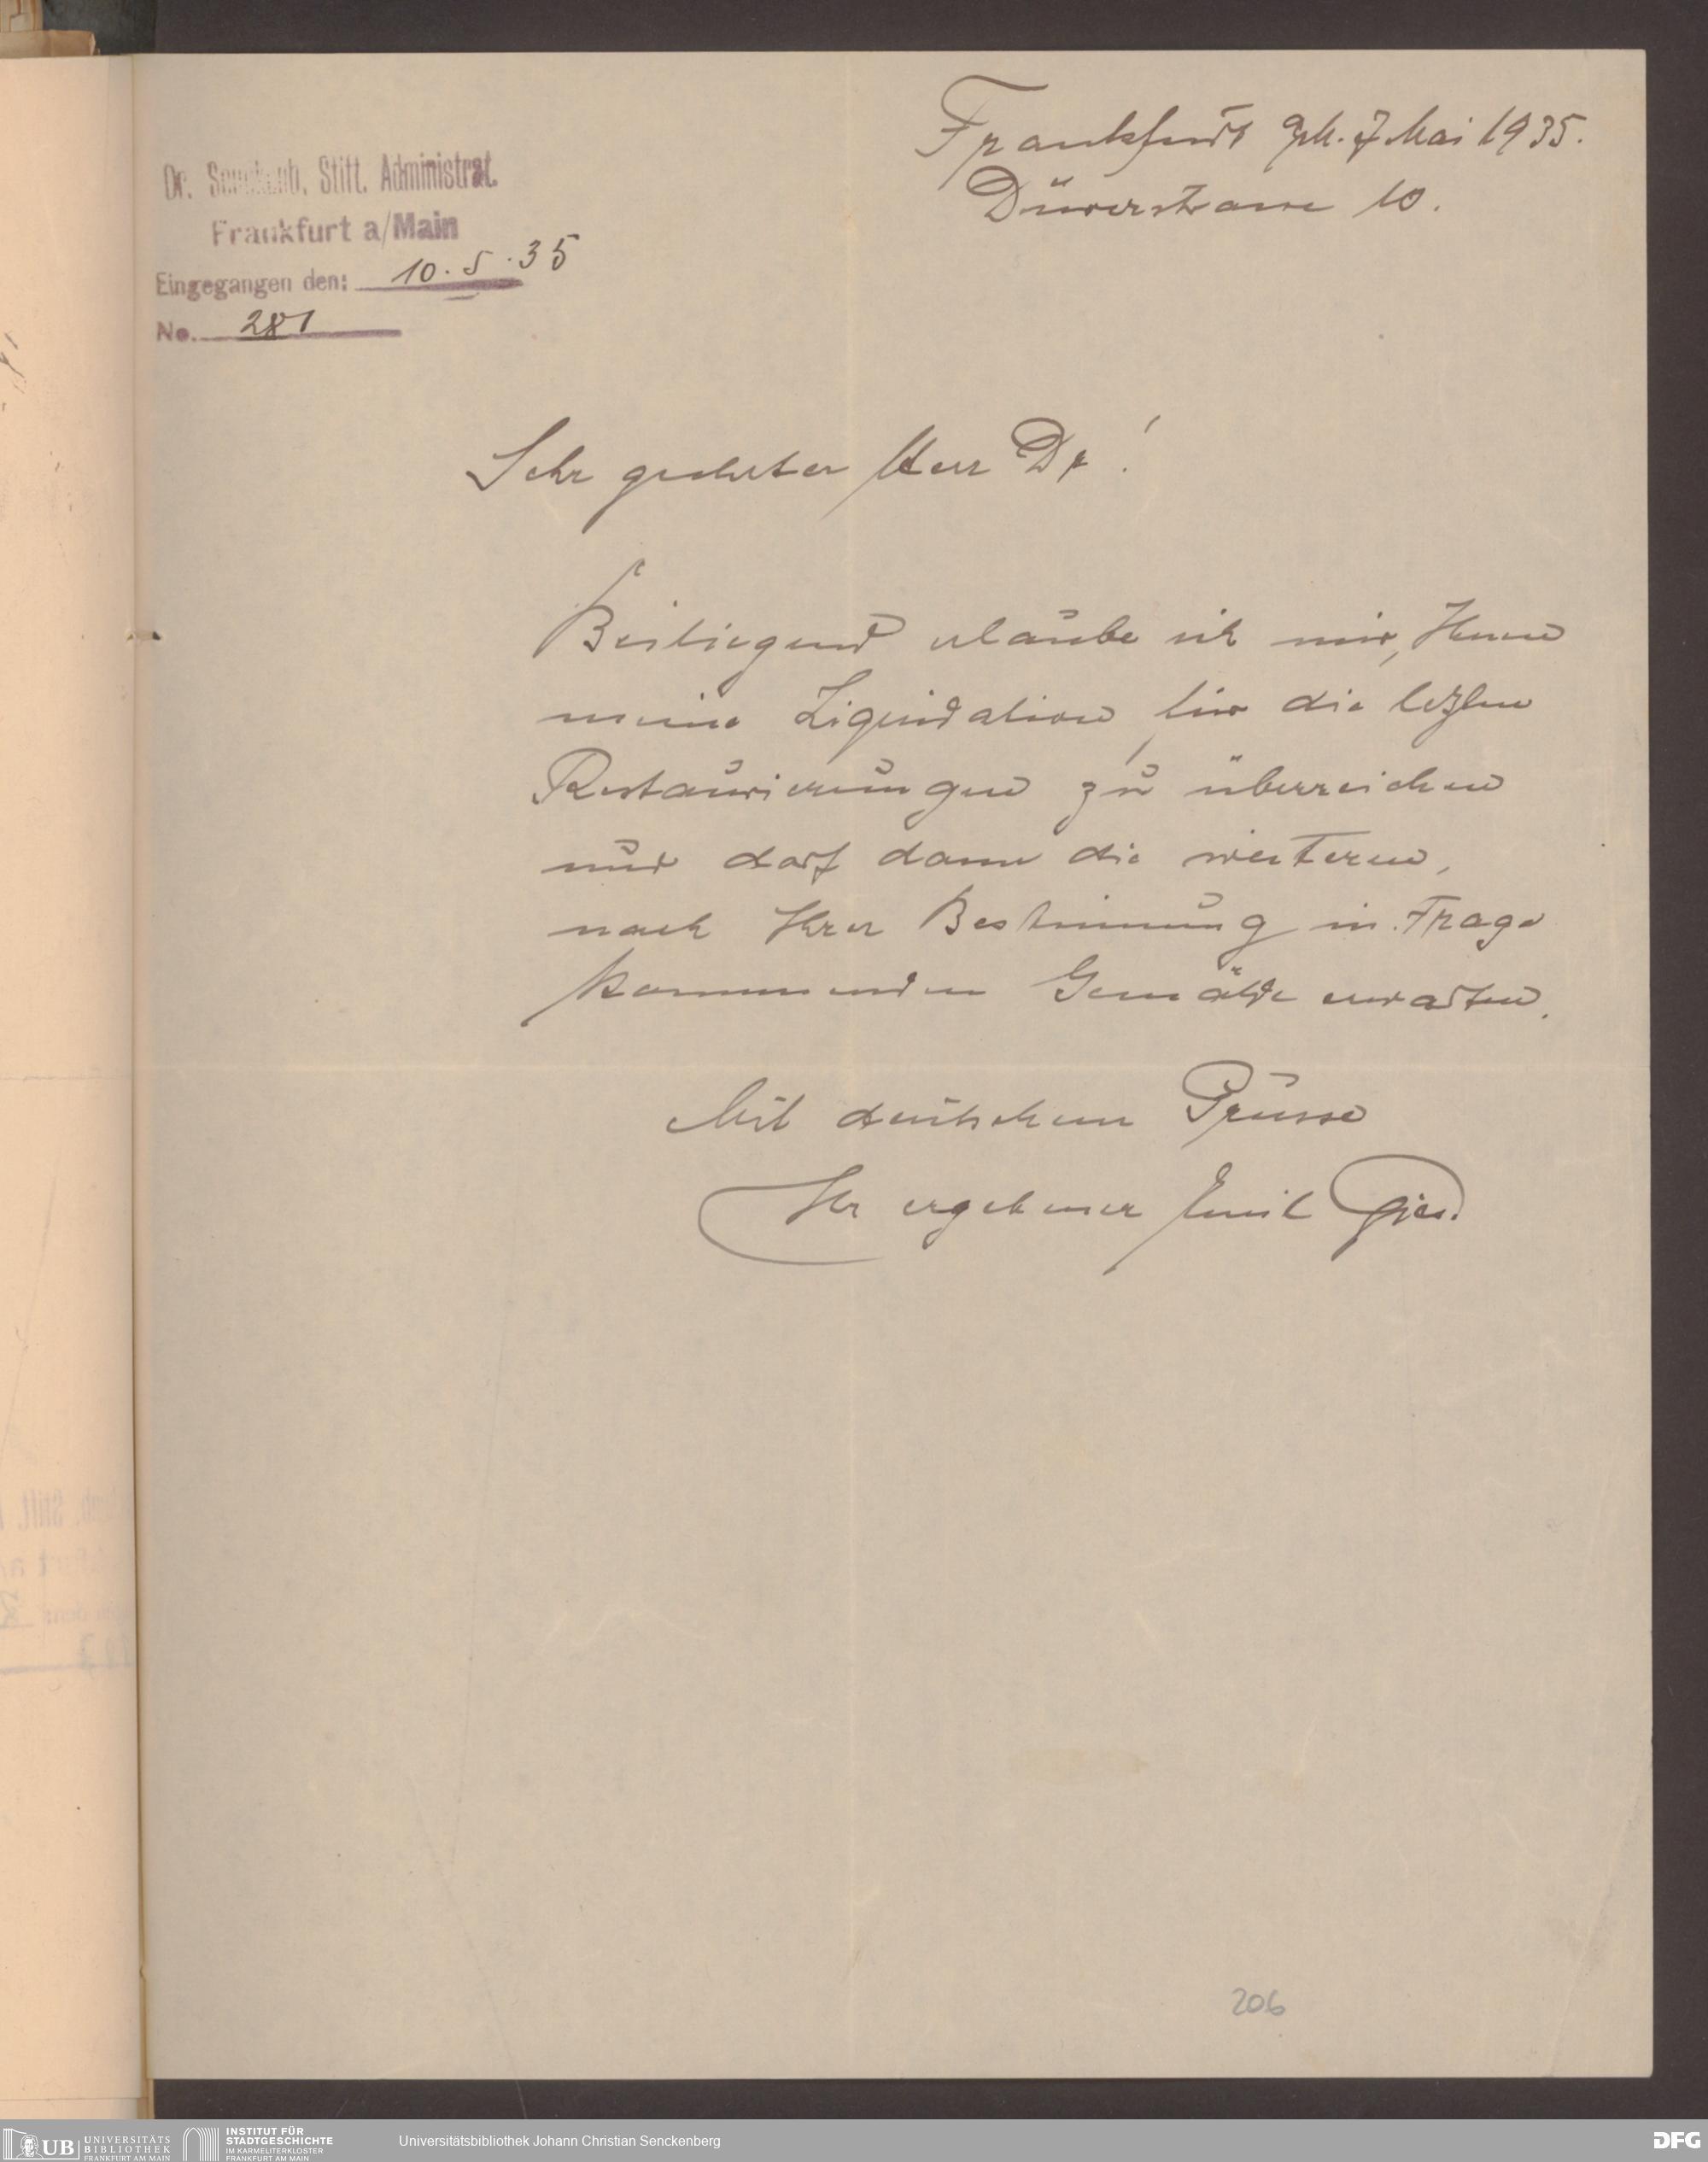 Dr. Senckenb. Stift. Administrat.
Frankfurt a/Main
Eingegangen den: 10.5.35
No. 281
Frankfurt a/M. 7 Mai 1935.
Dürerstrasse 10.
Sehr geehrter Herr Dr!
Beiliegend erlaube ich mir, Ihnen
meine Liquidation für die letzten
Restaurierungen zu überreichen
und darf dann die weiteren,
nach Ihrer Bestimmung in Frage
kommenden Gemälde erwarten.
Mit deutschem Grusse
Ihr ergebener Emil Gies.
206
UB UNIVERSITÄTS
BIBLIOTHEK
FRANKFURT AM MAIN
INSTITUT FÜR
STADTGESCHICHTE
IM KARMELITERKLOSTER
FRANKFURT AM MAIN
Universitätsbibliothek Johann Christian Senckenberg
DFG